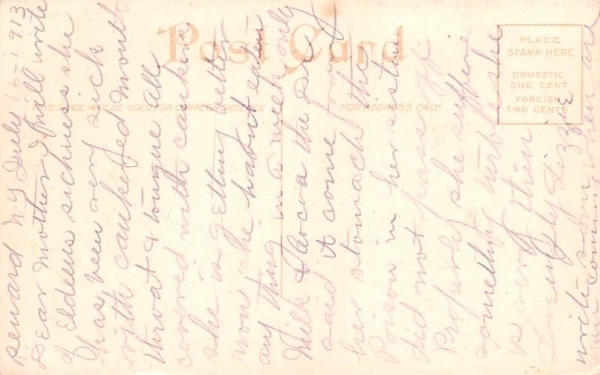 Post Card
THIS SPACE MAY BE USED FOR CORRESPONDENCE
FOR ADDRESS ONLY
PLACE
STAMP HERE
DOMESTIC
ONE CENT
FOREIGN
TWO CENTS
Seward NY July 1913
Dear Mother I will write
of Eldens sickness she
has been very sick
with cankered mouth
throat & tongue all
covered with canker
she is getting better
now she hasnt eaten
any thing in a week only
Milk & Cocoa the Dr
said it come from
her stomach the
Poison in her sto
did not pass off
she suffered
something turble she
is very thin
Lovingly Lizzie
write soon